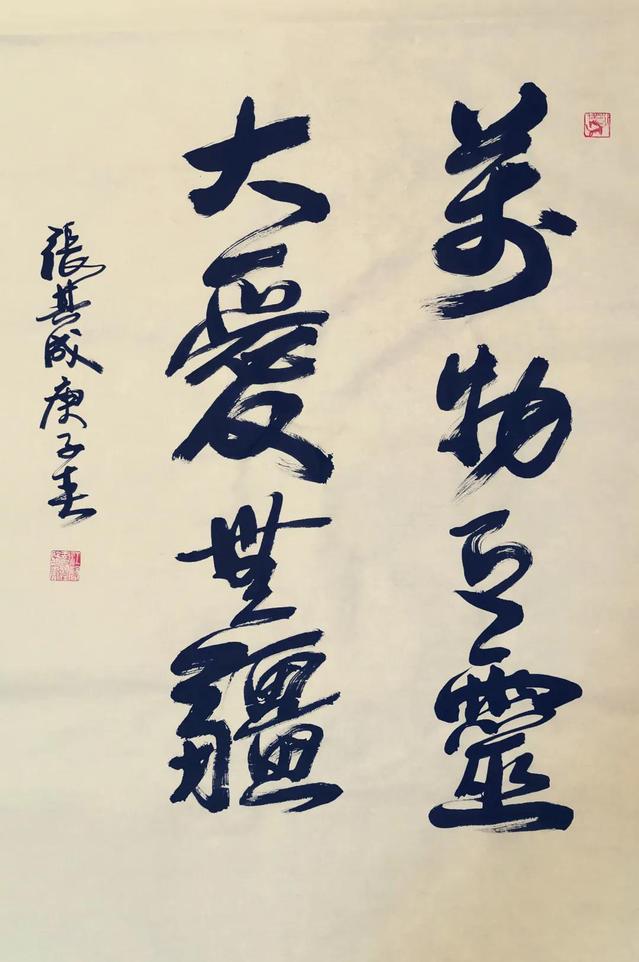 萬物互靈
大愛無疆
張其成庚子春